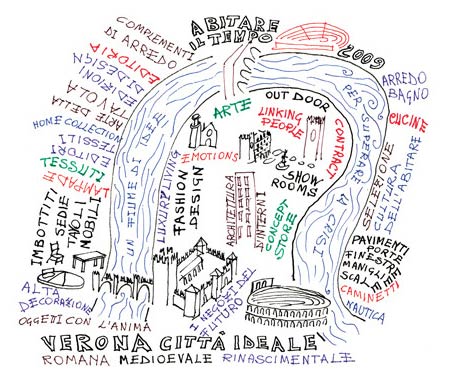 ABITARE
IL TEMPO
2009
COMPLEMENTI
DI ARREDO
EDITORIA
EDIZIONI
DI DESIGN
ARTE DELLA
TAVOLA
HOME COLLECTION
TESSILI
EDITORI
TESSUTI
LAMPADE
IMBOTTITI
SEDIE
TAVOLI
MOBILI
ALTA
DECORAZIONE
OGGETTI CON L'ANIMA
UN FIUME DI IDEE
PER SUPERARE LA CRISI
ARTE
OUT DOOR
LINKING
PEOPLE
CONTRACT
EMOTIONS
SHOW
ROOMS
LIVING
FASHION
DESIGN
ARCHITETTURA
D'INTERNI
CONCEPT
STORE
I NEGOZI DEL
FUTURO
ARREDO
BAGNO
CUCINE
SELEZIONE
CULTURA
DELL'ABITARE
PAVIMENTI
PORTE
FINESTRE
MANIGLIE
SCALE
CAMINETTI
NAUTICA
VERONA CITTÀ IDEALE
ROMANA MEDIOEVALE RINASCIMENTALE